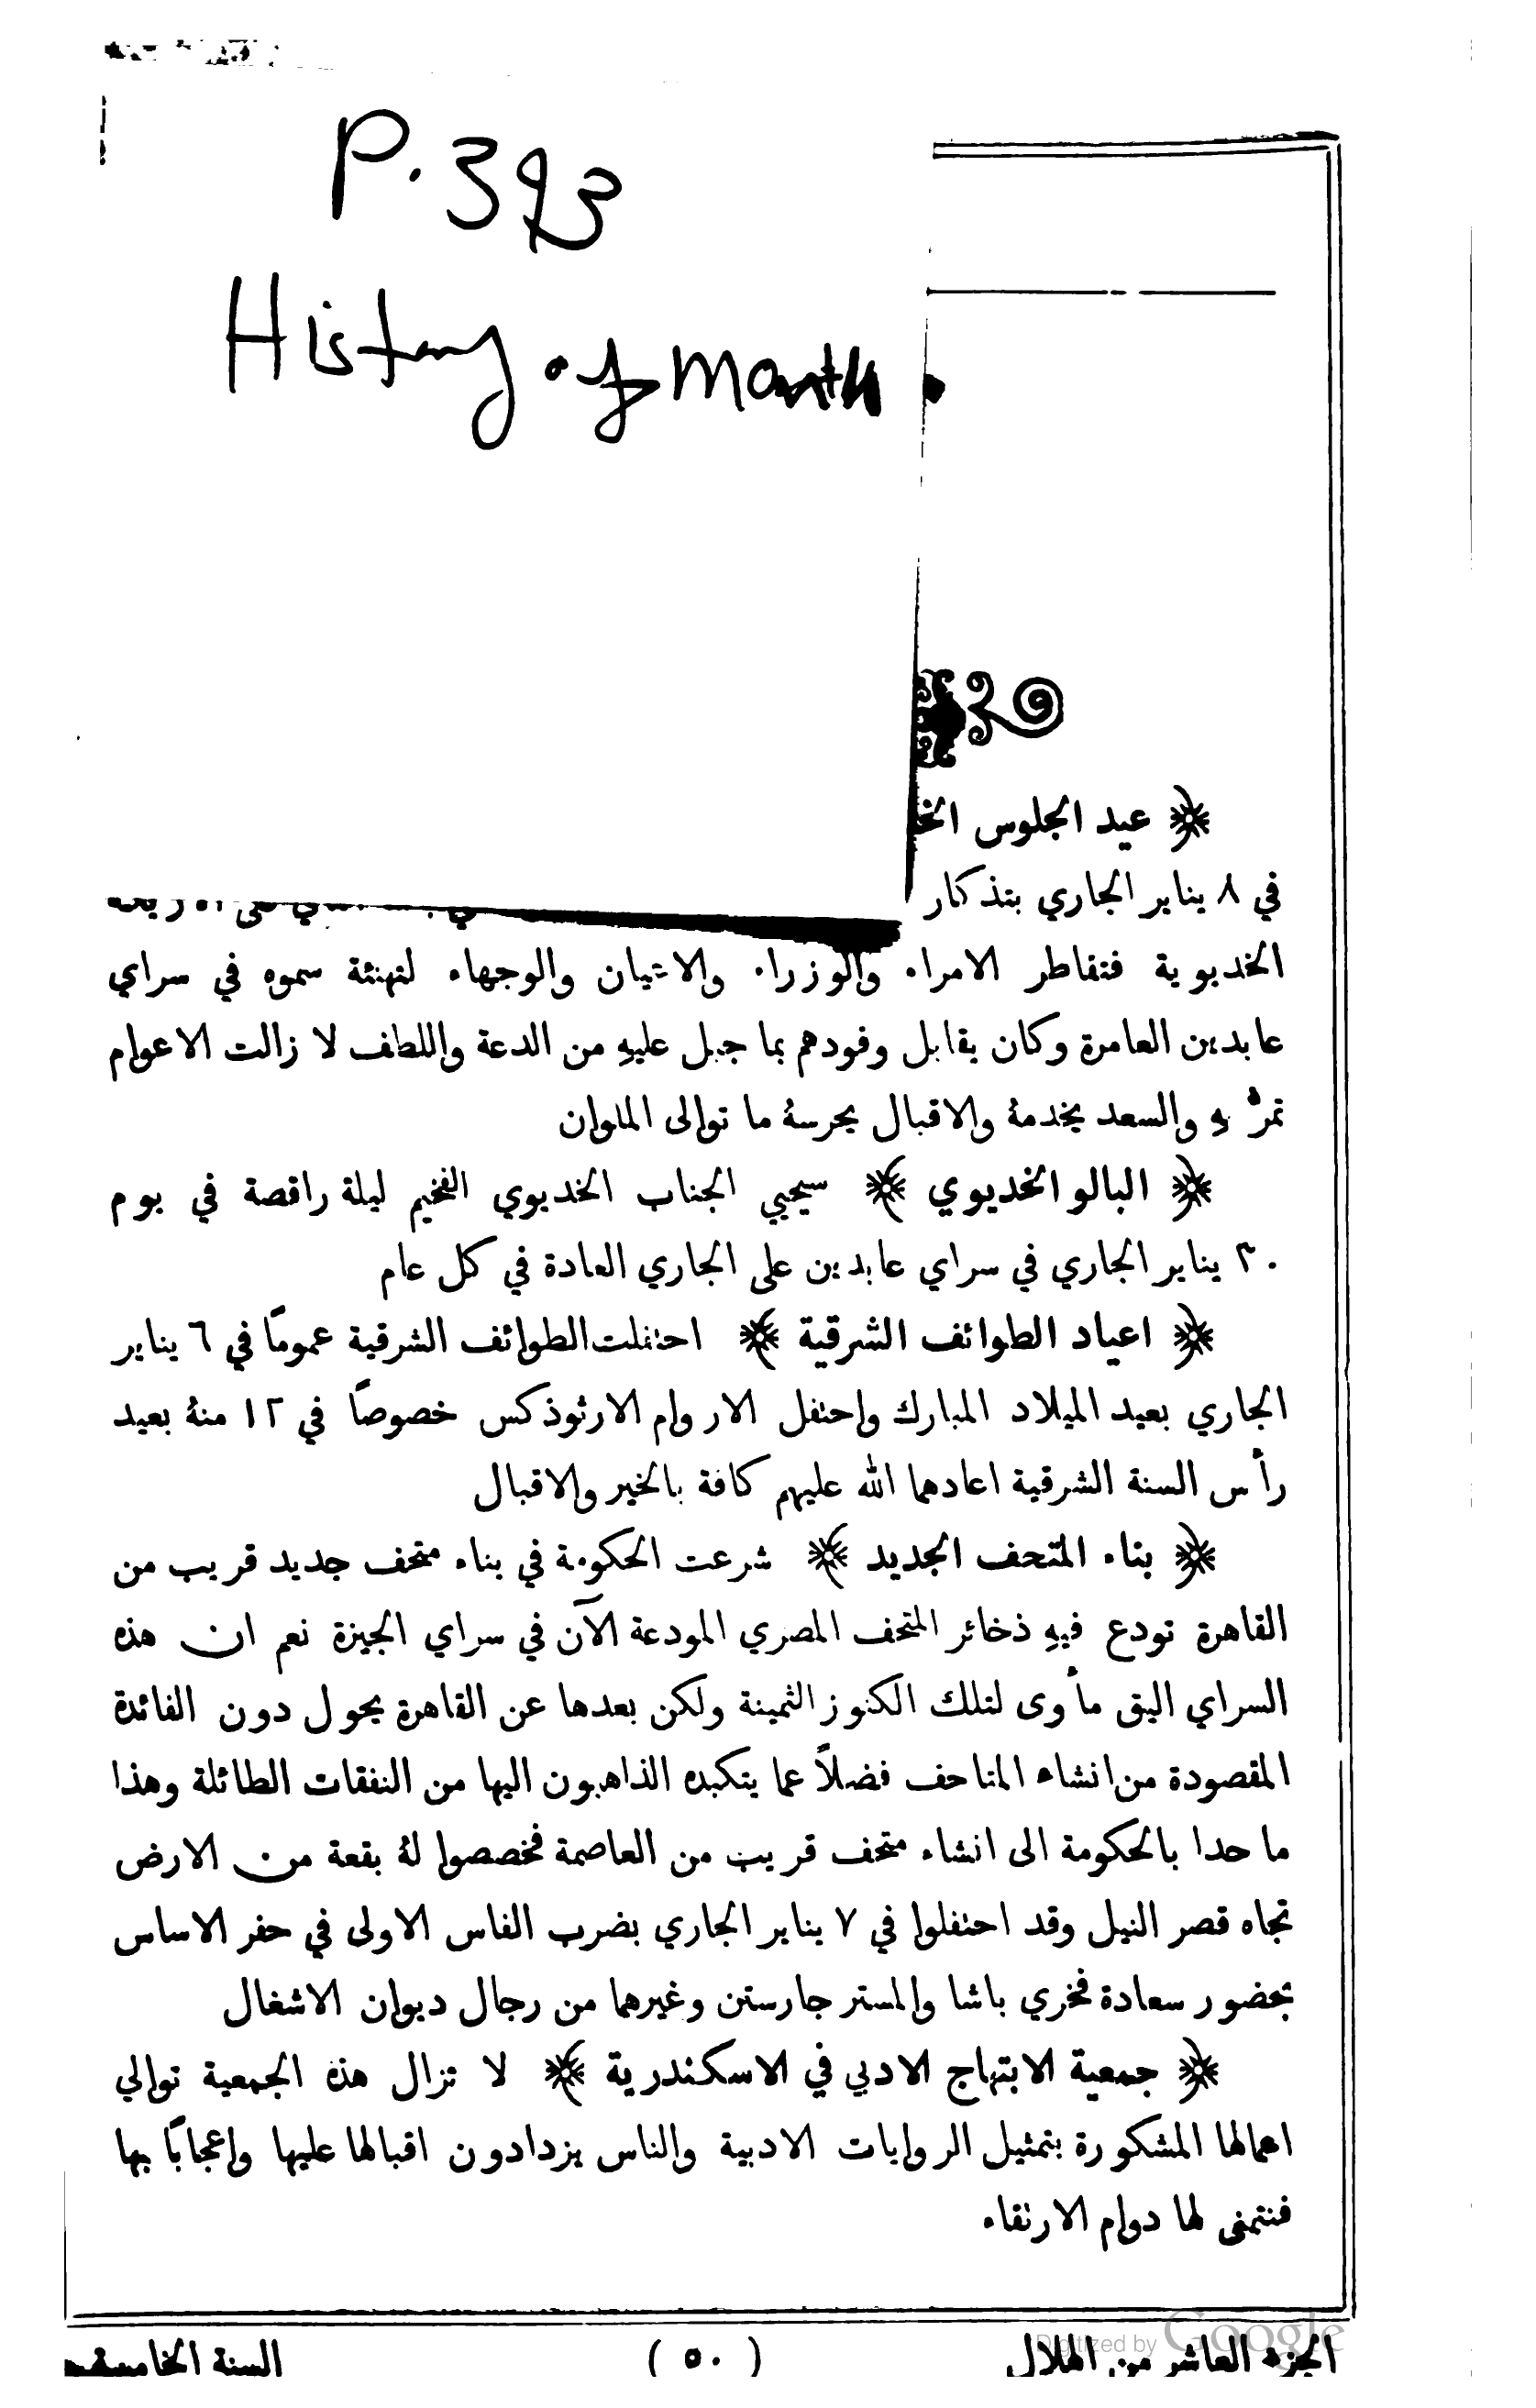 P. 393
History of month
عيد الجلوس الخ
في ٨ يناير الجاري بتذكار
الخديوية فتقاطر الامراء والوزراء والاعيان والوجهاء لتهنئة سموه في سراي
عابدين العامرة وكان يقابل وفودهم بما جبل عليهِ من الدعة واللطف لا زالت الاعوام
تمرُّ بهِ والسعد يخدمهُ والاقبال يحرسهُ ما توالى الملوان
﴿ البالو الخديوي ﴾ سيحيي الجناب الخديوي الفخيم ليلة راقصة في يوم
٢٠ يناير الجاري في سراي عابدين على الجاري العادة في كل عام
﴿ اعياد الطوائف الشرقية ﴾ احتفلت الطوائف الشرقية عموماً في ٦ يناير
الجاري بعيد الميلاد المبارك واحتفل الاروام الارثوذكس خصوصاً في ١٢ منهُ بعيد
رأس السنة الشرقية اعادهما الله عليهم كافة بالخير والاقبال
﴿ بناء المتحف الجديد ﴾ شرعت الحكومة في بناء متحف جديد قريب من
القاهرة تودع فيهِ ذخائر المتحف المصري المودعة الآن في سراي الجيزة نعم ان هذه
السراي اليق مأوى لتلك الكنوز الثمينة ولكن بعدها عن القاهرة يحول دون الفائدة
المقصودة من انشاء المتاحف فضلاً عما يتكبده الذاهبون اليها من النفقات الطائلة وهذا
ما حدا بالحكومة الى انشاء متحف قريب من العاصمة فخصصوا لهُ بقعة من الارض
تجاه قصر النيل وقد احتفلوا في ٧ يناير الجاري بضرب الفاس الاولى في حفر الاساس
بحضور سعادة فخري باشا والمستر جارستن وغيرهما من رجال ديوان الاشغال
﴿ جمعية الابتهاج الادبي في الاسكندرية ﴾ لا تزال هذه الجمعية توالي
اعمالها المشكورة بتمثيل الروايات الادبية والناس يزدادون اقبالها عليها واعجاباً بها
فنتمنى لها دوام الارتقاء
الجزء العاشر من الهلال (٥٠) السنة الخامسة
Digitized by Google